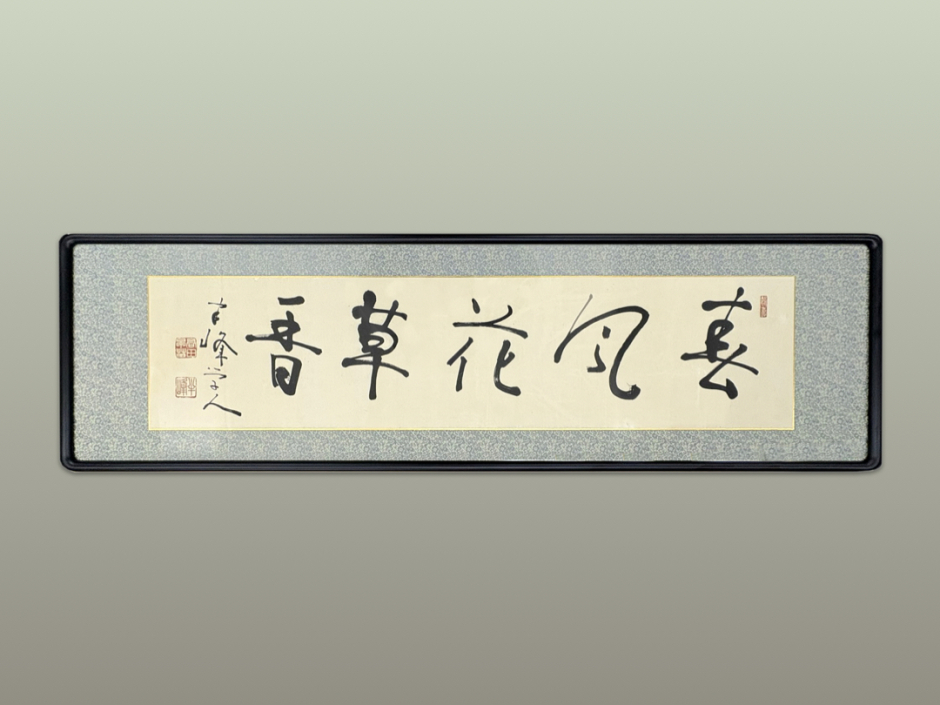 春風花草香
古峰学人